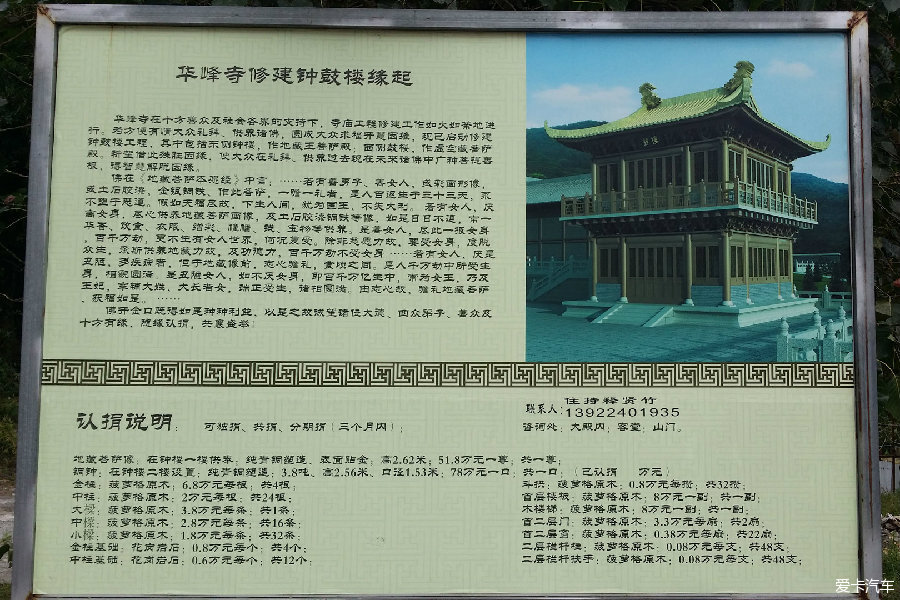 华峰寺修建钟鼓楼缘起
华峰寺在十方善众及社会各界的支持下，寺庙工程修建工作如火如荼地进
行。为方便有情大众礼拜、供养诸佛，圆成大众求福开慧因缘，现已启动修建
钟鼓楼工程，其中包括东侧钟楼，作地藏王菩萨殿；西侧鼓楼，作虚空藏菩萨
殿。祈望借此殊胜因缘，使大众在礼拜、供养过去现在未来诸佛中广种善根善
根，得智慧解脱因缘。
佛在《地藏菩萨本愿经》中言：……若有善男子、善女人，或彩画形像，
或土石胶漆，金银铜铁，作此菩萨，一瞻一礼者，是人百返生于三十三天，永
不堕于恶道。假如天福尽故，下生人间，犹为国王，不失大利。若有女人，厌
女人身，尽心供养地藏菩萨画像，及土石胶漆铜铁等像，如是日日不退，常以
华香、饮食、衣服、缯彩、幢幡、钱、宝物等供养，是善女人，尽此一报女身
，百千万劫，更不生有女人世界，何况复受。除非慈愿力故，要受女身，度脱
众生，承斯供养地藏力故，及功德力，百千万劫不受女身……若有女人，厌是
丑陋，多疾病者，但于地藏像前，志心瞻礼，食顷之间，是人千万劫中所受生
身，相貌圆满。是丑陋女人，如不厌女身，即百千万亿生中，常为王女，乃及
王妃，宰辅大姓，大长者女，端正受生，诸相圆满。由志心故，瞻礼地藏菩萨
，获福如是。……
佛开金口既得如是种种利益，以是之故诚望诸位大德、四众弟子、善众及
十方有缘，随缘认捐，共襄盛举！
认捐说明： 可独捐、共捐、分期捐（三个月内）；
住持释贤竹
联系人：13922401935
咨询处：大殿内；客堂；山门。
地藏菩萨像：在钟楼一楼供奉，纯青铜塑造，表面贴金；高2.62米；51.8万元一尊；共一尊；
铜钟：在钟楼二楼设置，纯青铜塑造；3.8吨、高2.56米、口径1.53米；78万元一口；共一口；（已认捐 万元）
金柱：菠萝格原木；6.8万元每根；共4根；
中柱：菠萝格原木；2万元每根；共24根；
大梁：菠萝格原木；3.8万元每条；共1条；
中梁：菠萝格原木；2.8万元每条；共16条；
小梁：菠萝格原木；1.8万元每条；共32条；
金柱基础：花岗岩石；0.8万元每个；共4个；
中柱基础：花岗岩石；0.6万元每个；共12个；
斗拱：菠萝格原木；0.8万元每拱；共32拱；
首层楼板：菠萝格原木；8万元一副；共一副；
木楼梯：菠萝格原木；8万元一副；共一副；
首二层门：菠萝格原木；3.3万元每扇；共2扇；
首二层窗：菠萝格原木；0.38万元每扇；共22扇；
二层栏杆柱：菠萝格原木；0.08万元每支；共48支；
二层栏杆扶手：菠萝格原木；0.08万元每支；共48支；
爱卡汽车